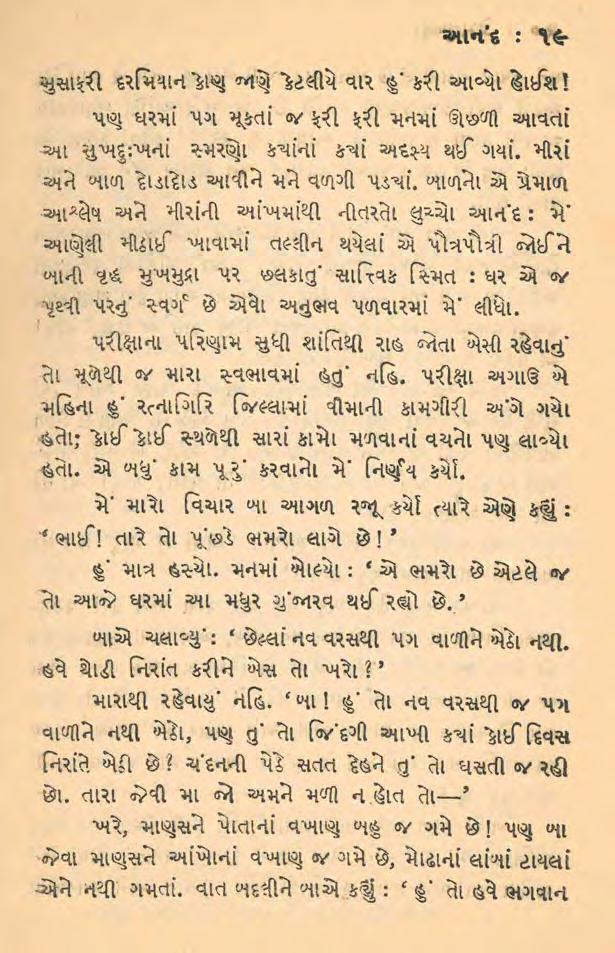 આનંદ : ૧૯
મુસાફરી દરમિયાન કોણ જાણે કેટલીયે વાર હું કરી આવ્યો હોઈશ!
પણ ઘરમાં પગ મૂકતાં જ ફરી ફરી મનમાં ઊછળી આવતાં
આ સુખદુઃખનાં સ્મરણો કયાંનાં કયાં અદૃશ્ય થઈ ગયાં. મીરાં
અને બાળ દોડાદોડ આવીને મને વળગી પડયાં. બાળનો એ પ્રેમાળ
આશ્લેષ અને મીરાંની આંખમાંથી નીતરતો લુચ્ચો આનંદ : મેં
આણેલી મીઠાઈ ખાવામાં તલ્લીન થયેલાં એ પૌત્રપૌત્રી જોઈને
બાની વૃદ્ધ મુખમુદ્રા પર છલકાતું સાત્ત્વિક સ્મિત : ઘર એ જ
પૃથ્વી પરનું સ્વર્ગ છે એવો અનુભવ પળવારમાં મેં લીધો.
પરીક્ષાના પરિણામ સુધી શાંતિથી રાહ જોતા બેસી રહેવાનું
તો મૂળથી જ મારા સ્વભાવમાં હતું નહિ. પરીક્ષા અગાઉ બે
મહિના હું રત્નાગિરિ જિલ્લામાં વીમાની કામગીરી અંગે ગયો
હતો; કોઈ કોઈ સ્થળેથી સારાં કામો મળવાનાં વચનો પણ લાવ્યો
હતો. એ બધું કામ પૂરું કરવાનો મેં નિર્ણય કર્યો.
મેં મારો વિચાર બા આગળ રજૂ કર્યો ત્યારે એણે કહ્યું :
‘ ભાઈ! તારે તો પૂંછડે ભમરો લાગે છે!’
હું માત્ર હસ્યો. મનમાં બોલ્યો : ‘ એ ભમરો છે એટલે જ
તો આજે ઘરમાં આ મધુર ગુંજારવ થઈ રહ્યો છે.’
બાએ ચલાવ્યું : ‘ છેલ્લાં નવ વરસથી પગ વાળીને બેઠો નથી.
હવે થોડી નિરાંત કરીને બેસ તો ખરો?’
મારાથી રહેવાયું નહિ. ‘બા! હું તો નવ વરસથી જ પગ
વાળીને નથી બેઠો, પણ તું તો જિંદગી આખી કયાં કોઈ દિવસ
નિરાંતે બેઠી છે? ચંદનની પેઠે સતત દેહને તું તો ઘસતી જ રહી
છો. તારા જેવી મા જો અમને મળી ન હોત તો—’
ખરે, માણસને પોતાનાં વખાણ બહુ જ ગમે છે! પણ બા
જેવા માણસને આંખોનાં વખાણ જ ગમે છે, મોઢાનાં લાંબાં ટાયલાં
એને નથી ગમતાં. વાત બદલીને બાએ કહ્યું : ‘ હું તો હવે ભગવાન